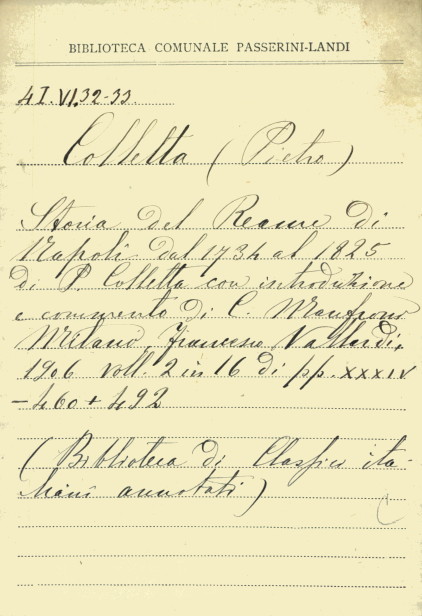 BIBLIOTECA COMUNALE PASSERINI-LANDI
4I.VI.32-33.
Colletta (Pietro)
Storia del Reame di
Napoli dal 1734 al 1825
di P. Colletta con introduzione
e commento di C. Manfroni
Milano, Francesco Vallardi,
1906 voll. 2 in 16 di pp. XXXIV
-460+492
(Biblioteca di Classici ita-
liani annotati)